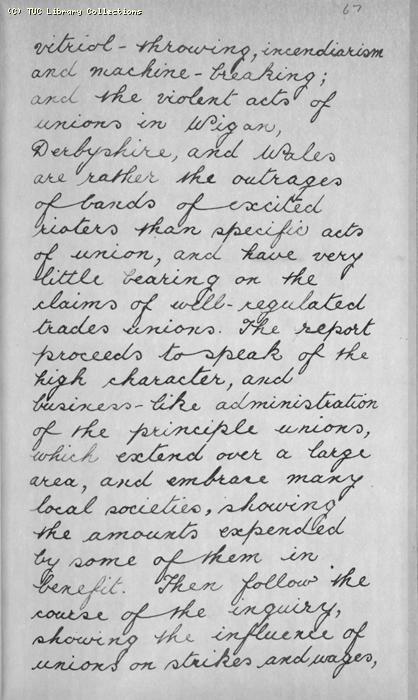 (C) TUC Library Collections
67
vitriol-throwing, incendiarism
and machine-breaking;
and the violent acts of
unions in Wigan,
Derbyshire, and Wales
are rather the outrages
of bands of excited
rioters than specific acts
of union, and have very
little bearing on the
claims of well-regulated
trades unions. The report
proceeds to speak of the
high character, and
business-like administration
of the principle unions,
which extend over a large
area, and embrase many
local societies, showing
the amounts expended
by some of them in
benefit. Then follow the
course of the inquiry,
showing the influence of
unions on strikes and wages,